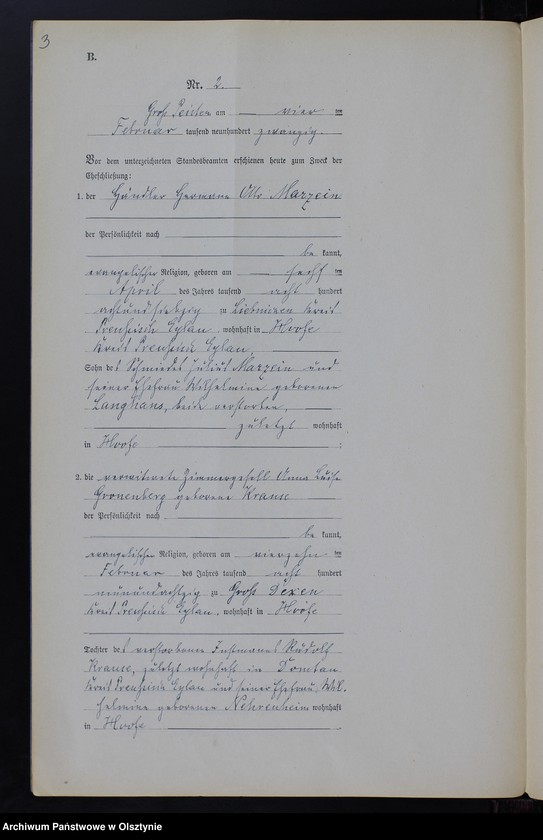 3
B.
Nr. 2.
Groß Peisten am vier ten
Februar tausend neunhundert zwanzig.
Vor dem unterzeichneten Standesbeamten erschienen heute zum Zweck der
Eheschließung:
1. der Händler Hermann Otto Marzein
der Persönlichkeit nach
be kannt,
evangelischer Religion, geboren am sechs ten
April des Jahres tausend acht hundert
achtundsiebzig zu Liebnicken Kreis
Preußisch Eylau, wohnhaft in Hoofe
Kreis Preußisch Eylau,
Sohn des Schmiedes Julius Marzein und
seiner Ehefrau Wilhelmine geborenen
Langhans, beide verstorben,
zuletzt wohnhaft
in Hoofe
2. die verwitwete Zimmergesell Anna Luise
Gronenberg geborene Krause
der Persönlichkeit nach
be kannt,
evangelischen Religion, geboren am vierzehn ten
Februar des Jahres tausend acht hundert
neunundachtzig zu Groß Dexen
Kreis Preußisch Eylau, wohnhaft in Hoofe
Tochter des verstorbenen Instmanns Rudolf
Krause, zuletzt wohnhaft in Domtau
Kreis Preußisch Eylau und seiner Ehefrau Wil-
helmine geborenen Nehrenheim wohnhaft
in Hoofe
Archiwum Państwowe w Olsztynie